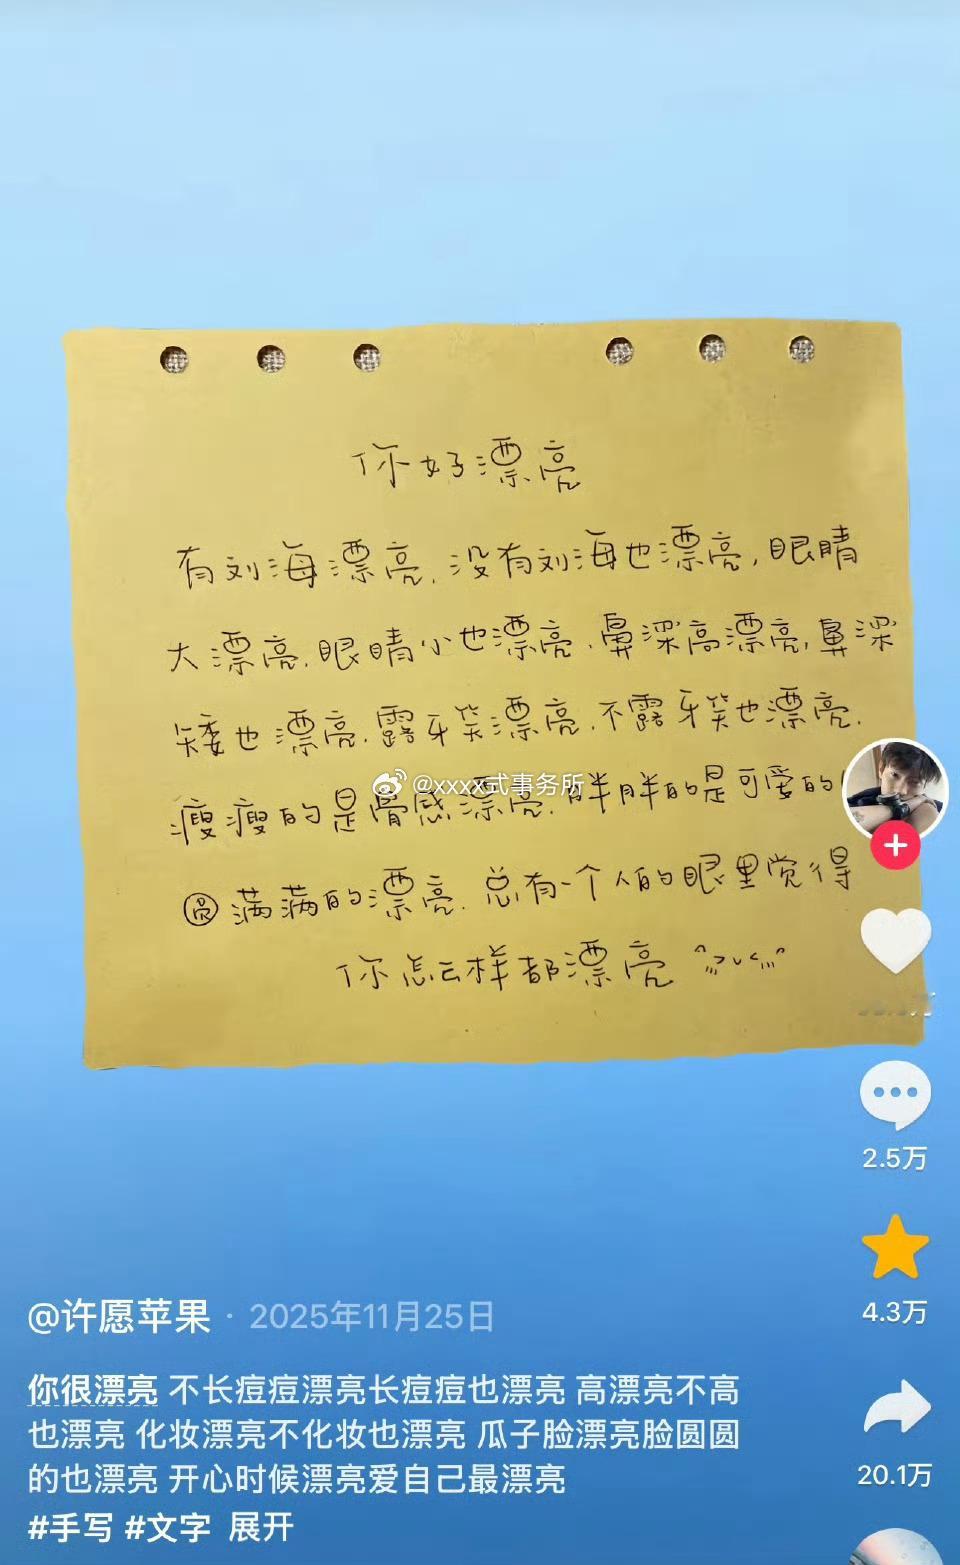 你好漂亮
有刘海漂亮.没有刘海也漂亮,眼睛
大漂亮.眼睛小也漂亮.鼻深高漂亮,鼻深
矮也漂亮.露牙笑漂亮.不露牙笑也漂亮.
@xxxx式事务所
瘦瘦的是骨感漂亮.胖胖的是可爱的
圆满满的漂亮.总有一个人的眼里觉得
你怎么样都漂亮 ^,,,>ᴗ<,,,^
2.5万
4.3万
@许愿苹果 · 2025年11月25日
你很漂亮 不长痘痘漂亮长痘痘也漂亮 高漂亮不高
也漂亮 化妆漂亮不化妆也漂亮 瓜子脸漂亮脸圆圆
20.1万
的也漂亮 开心时候漂亮爱自己最漂亮
#手写 #文字 展开